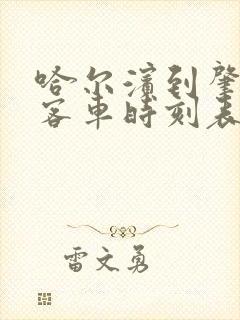 哈尔滨到肇
客车时刻表
雷文勇